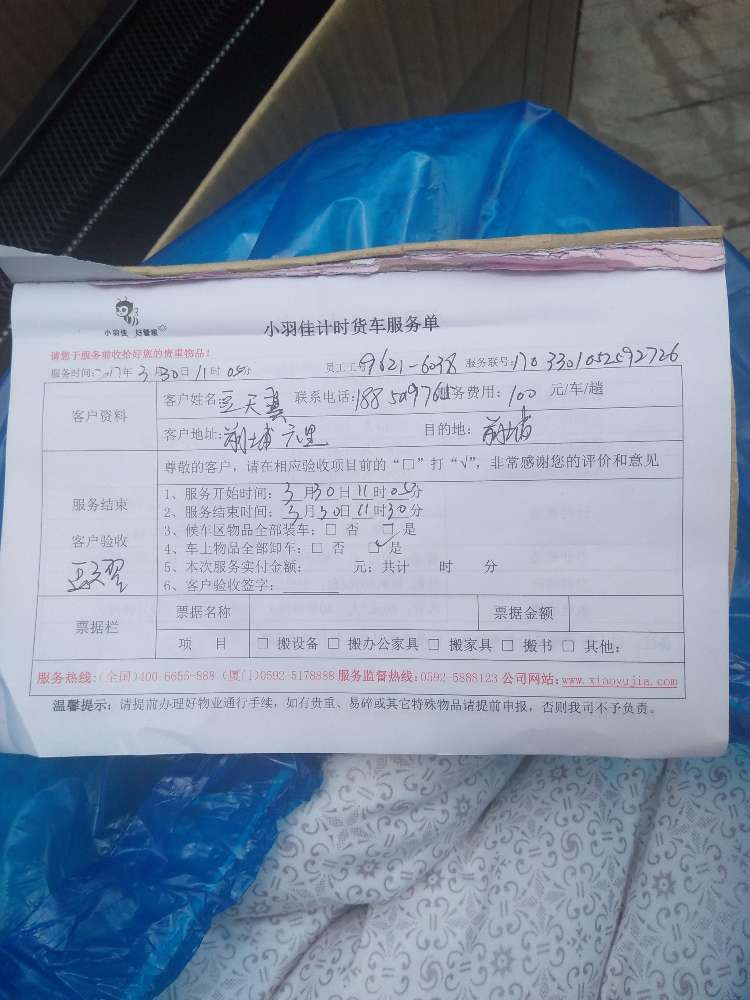 小羽佳 好管家
小羽佳计时货车服务单
请您于服务前收拾好您的贵重物品!
服务时间:2017年3月30日11时05分 员工工号9621-6038 服务联号:1703301052592726
客户资料
客户姓名:豆天翼 联系电话:188509765 务费用:100 元/车/趟
客户地址:蔡塘 目的地:蔡塘
尊敬的客户,请在相应验收项目前的“□”打“√”,非常感谢您的评价和意见
服务结束
客户验收
1、服务开始时间:3月30日11时05分
2、服务结束时间:3月30日11时30分
3、候车区物品全部装车:□ 否 □ 是
4、车上物品全部卸车:□ 否 ☑ 是
5、本次服务实付金额: 元;共计 时 分
6、客户验收签字:
票据栏
票据名称 票据金额
项 目 □ 搬设备 □ 搬办公家具 □ 搬家具 □ 搬书 □ 其他:
服务热线:(全国)400-6655-888 (厦门)0592-5178888 服务监督热线:0592-5888123 公司网站:www.xiaoyujia.com
温馨提示:请提前办理好物业通行手续,如有贵重、易碎或其它特殊物品请提前申报,否则我司不予负责。